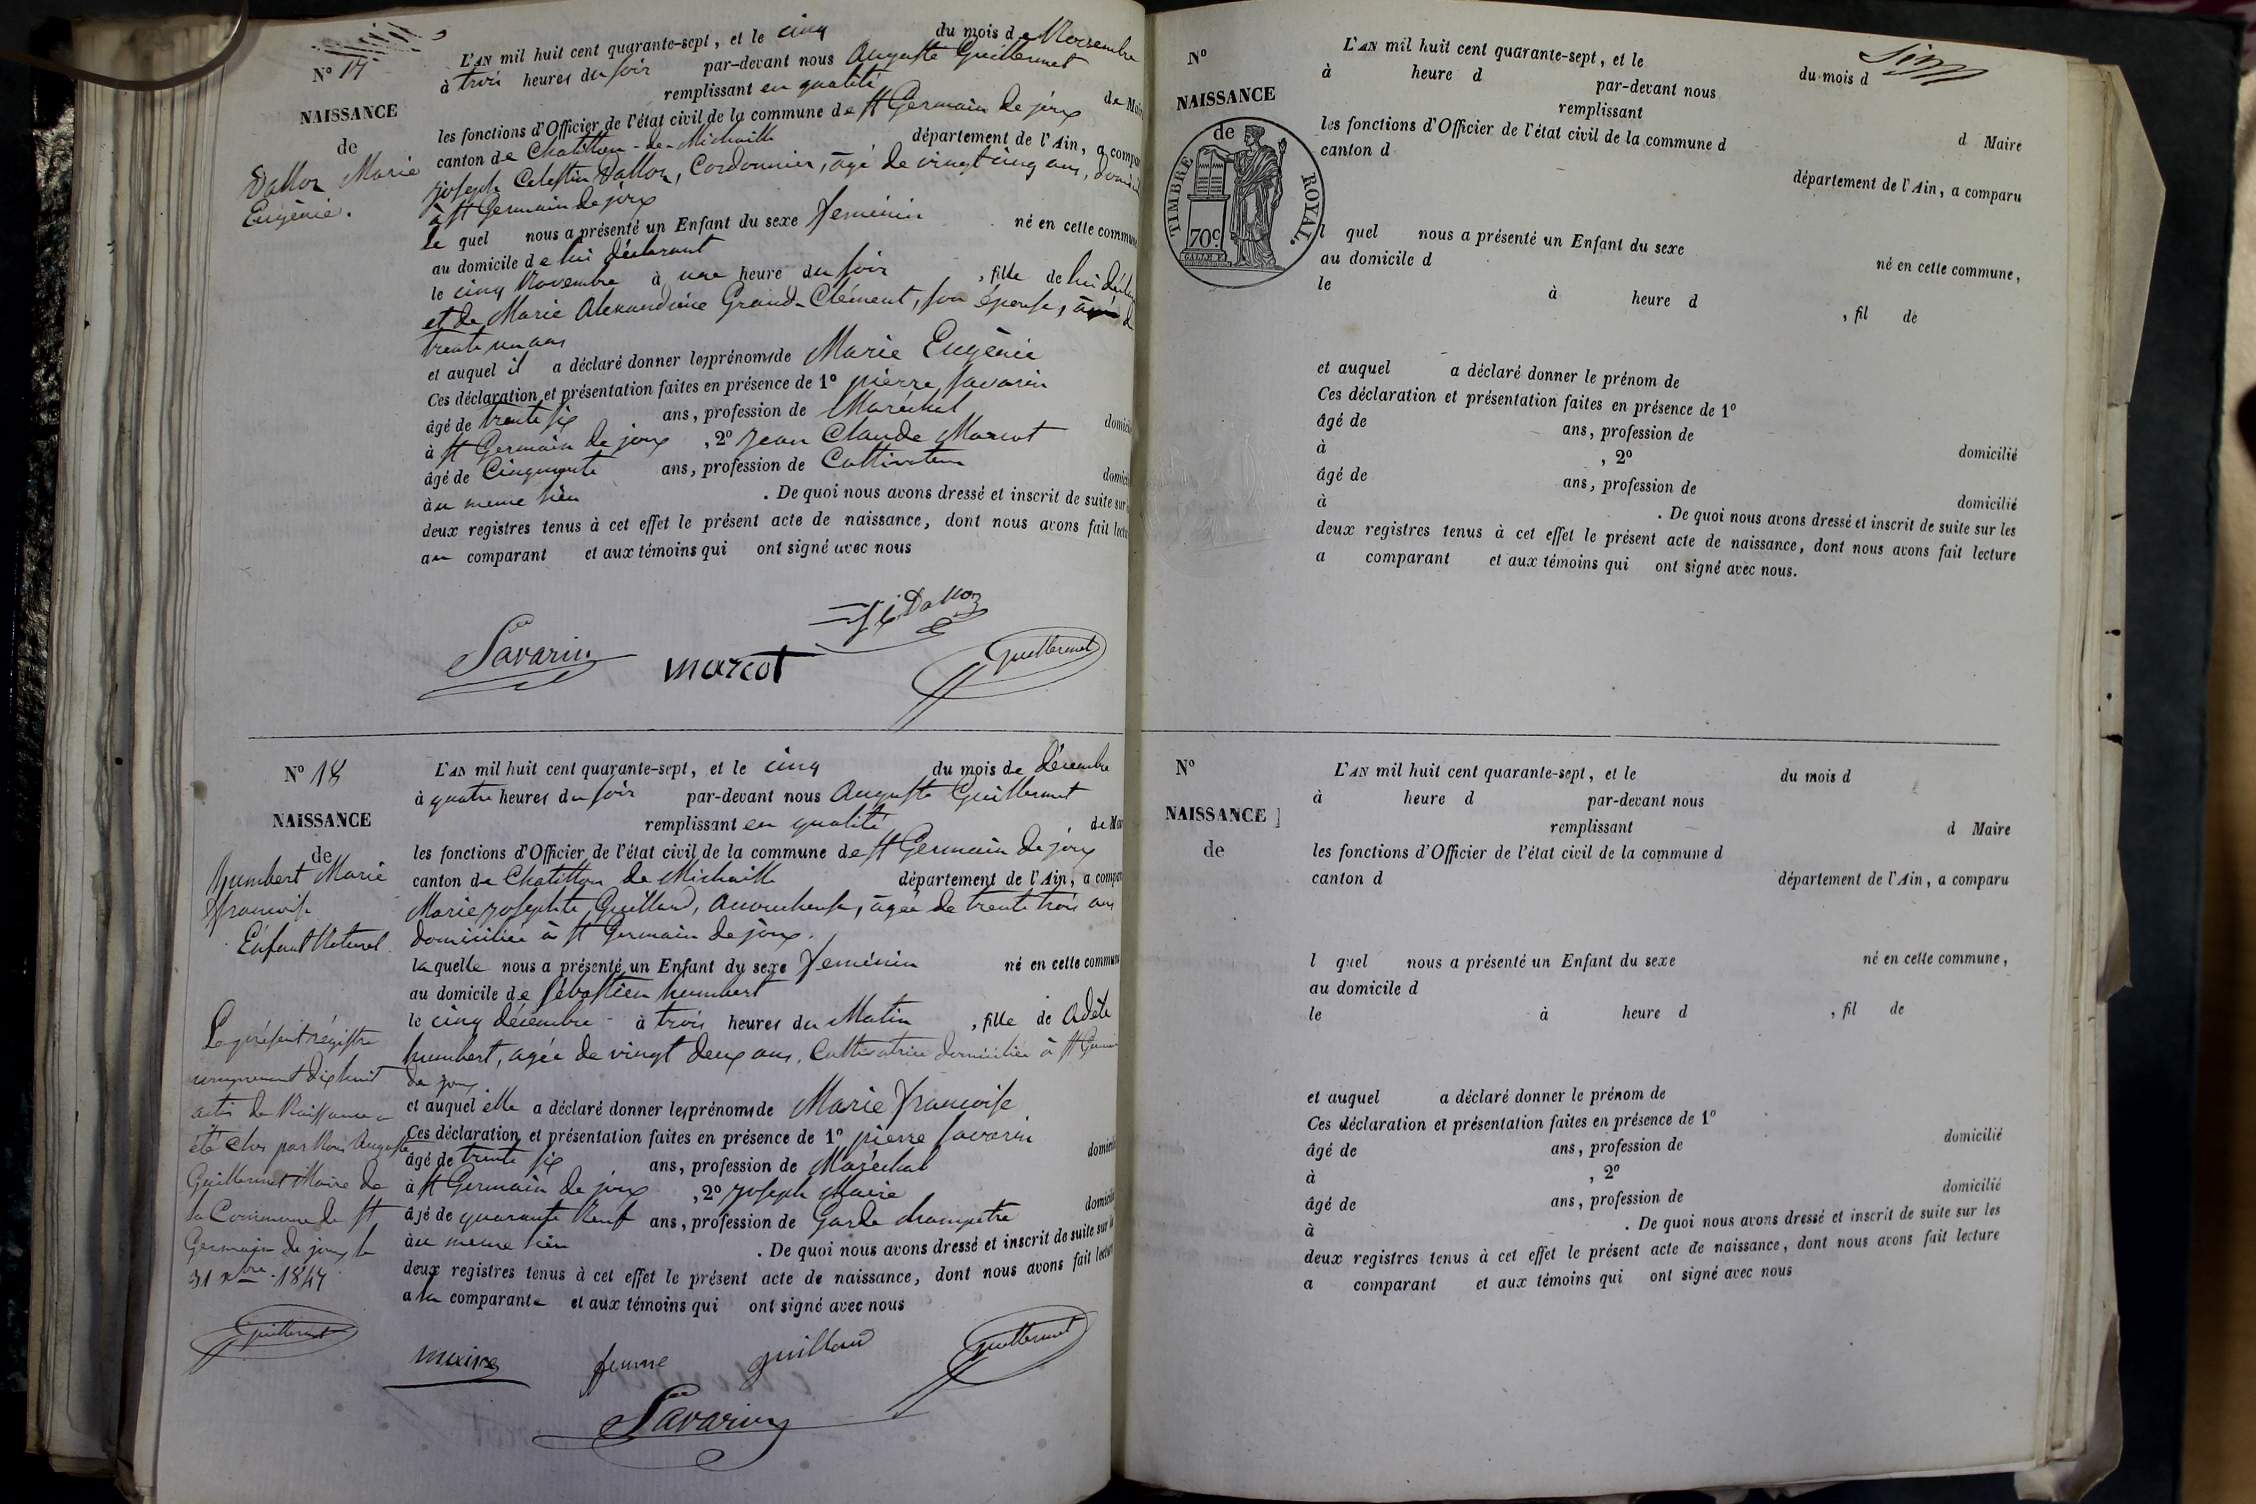 N° 17
NAISSANCE
de
Dallon Marie
Eugénie.
L'AN mil huit cent quarante-sept, et le cinq du mois de Novembre
à trois heures du soir par-devant nous Auguste Guillermet
remplissant en qualité de Mai
les fonctions d'Officier de l'état civil de la commune de St Germain de joux
canton de Chatillon-de-Michaille département de l'Ain, a compa
joseph Celestin Dallon, Cordonnier, âgé de vingt cinq ans, domicil
à St Germain de joux
le quel nous a présenté un Enfant du sexe feminin né en cette commune
au domicile de lui déclarant
le cinq Novembre à une heure du soir , fille de lui décla
et de Marie Alexandrine Grand-Clément, son épouse, âgée de
trente un ans
et auquel il a déclaré donner les prénoms de Marie Eugénie
Ces déclaration et présentation faites en présence de 1° pierre savarin
âgé de trente six ans, profession de Maréchal domicil
à St Germain de joux , 2° jean Claude Marcot
âgé de Cinquante ans, profession de Cultivateur domicil
à u meme lieu . De quoi nous avons dressé et inscrit de suite sur
deux registres tenus à cet effet le présent acte de naissance, dont nous avons fait lectu
au comparant et aux témoins qui ont signé avec nous
Dallon
Savarin marcot Guillermet
N° 18
NAISSANCE
de
humbert Marie
françoise
Enfant Naturel
L'AN mil huit cent quarante-sept, et le cinq du mois de décembre
à quatre heures du soir par-devant nous Auguste Guillermet
remplissant en qualité de Mai
les fonctions d'Officier de l'état civil de la commune de St Germain de joux
canton de Chatillon de Michaille département de l'Ain, a compar
Marie josephte Guilland, Accoucheuse, âgée de trente trois ans
domiciliée à St Germain de joux.
la quelle nous a présenté un Enfant du sexe feminin né en cette commune
au domicile de Sébastien humbert
le cinq décembre à trois heures du Matin , fille de Adèle
humbert, agée de vingt deux ans, Cultivatrice domiciliée à St Germain
de joux
et auquel elle a déclaré donner les prénoms de Marie françoise
Ces déclaration et présentation faites en présence de 1° pierre savarin
âgé de trente six ans, profession de Maréchal domicil
à St Germain de joux , 2° joseph Maire
âgé de quarante Neuf ans, profession de Garde champetre domicil
àu meme lieu . De quoi nous avons dressé et inscrit de suite sur
deux registres tenus à cet effet le présent acte de naissance, dont nous avons fait lectur
a la comparante et aux témoins qui ont signé avec nous
Le présent régistre
comprenant dix huit
actes de Naissance a
été clos par Nous Auguste
Guillermet Maire de
la Commune de St
Germain de joux le
31 xbre 1847
Guillermet
maire femme guilland Guillermet
Savarin
N°
NAISSANCE
de
TIMBRE ROYAL.
70c
L'AN mil huit cent quarante-sept, et le du mois d
à heure d par-devant nous
remplissant d Maire
les fonctions d'Officier de l'état civil de la commune d
canton d département de l'Ain, a comparu
l quel nous a présenté un Enfant du sexe né en cette commune,
au domicile d
le à heure d , fil de
et auquel a déclaré donner le prénom de
Ces déclaration et présentation faites en présence de 1°
âgé de ans, profession de domicilié
à , 2°
âgé de ans, profession de domicilié
à . De quoi nous avons dressé et inscrit de suite sur les
deux registres tenus à cet effet le présent acte de naissance, dont nous avons fait lecture
a comparant et aux témoins qui ont signé avec nous.
N°
NAISSANCE
de
L'AN mil huit cent quarante-sept, et le du mois d
à heure d par-devant nous
remplissant d Maire
les fonctions d'Officier de l'état civil de la commune d
canton d département de l'Ain, a comparu
l quel nous a présenté un Enfant du sexe né en cette commune,
au domicile d
le à heure d , fil de
et auquel a déclaré donner le prénom de
Ces déclaration et présentation faites en présence de 1°
âgé de ans, profession de domicilié
à , 2°
âgé de ans, profession de domicilié
à . De quoi nous avons dressé et inscrit de suite sur les
deux registres tenus à cet effet le présent acte de naissance, dont nous avons fait lecture
a comparant et aux témoins qui ont signé avec nous